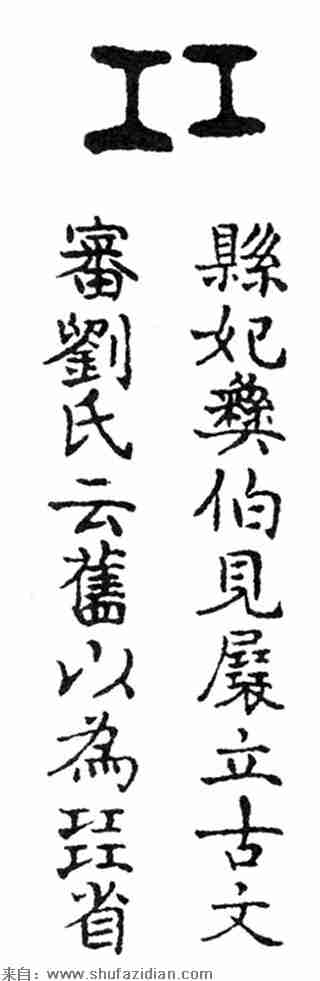 工工
縣妃彝伯見展立古文
審劉氏云舊以為㠭省
来自：www.shufazidian.com